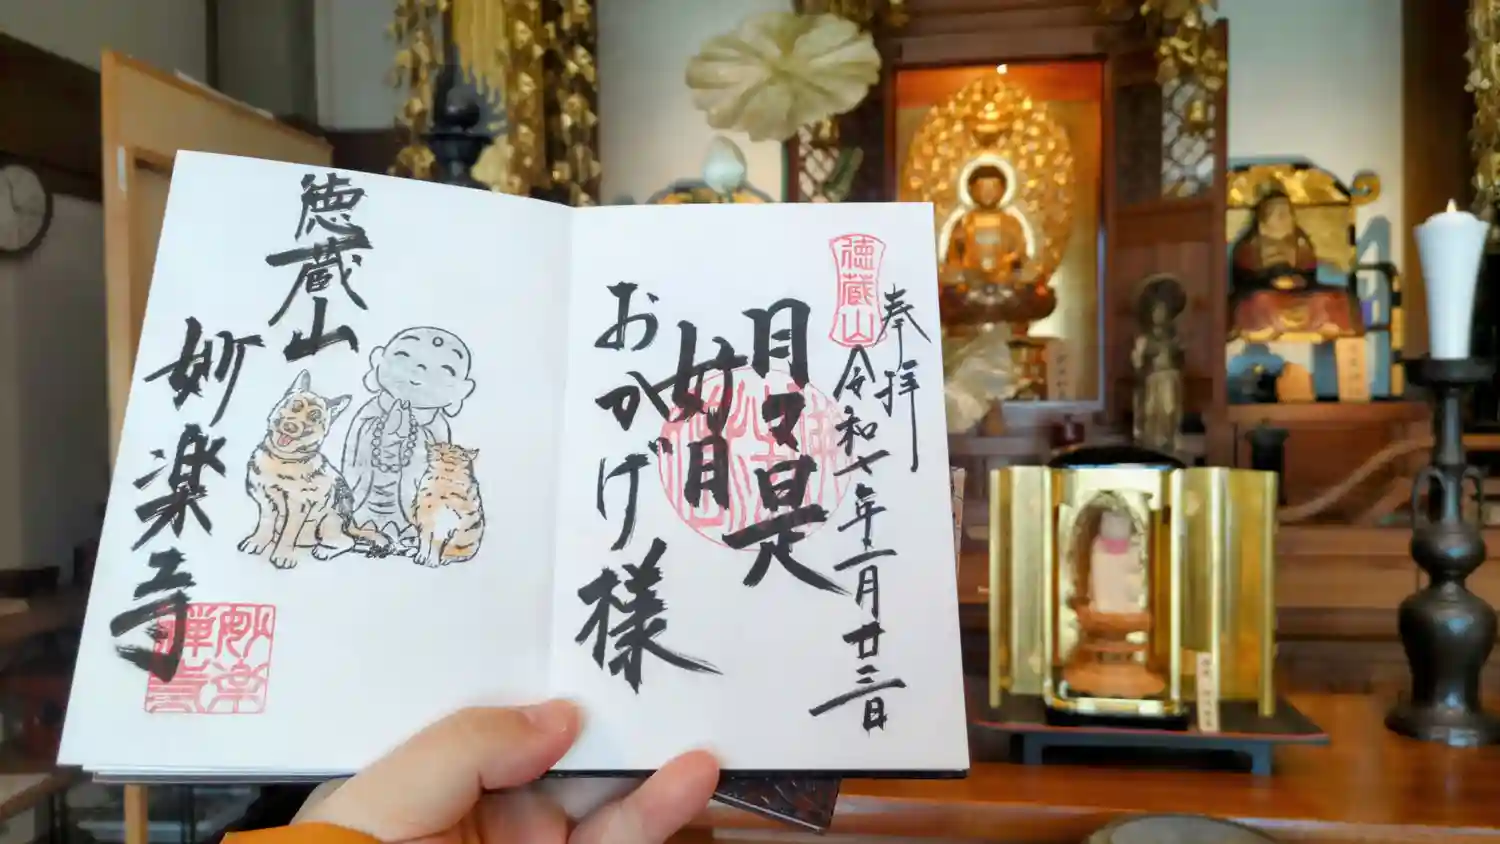 奉拝
徳蔵山
令和七年二月廿三日
月々是
好月
おかげ様
徳蔵山
妙楽寺
妙楽
禅寺